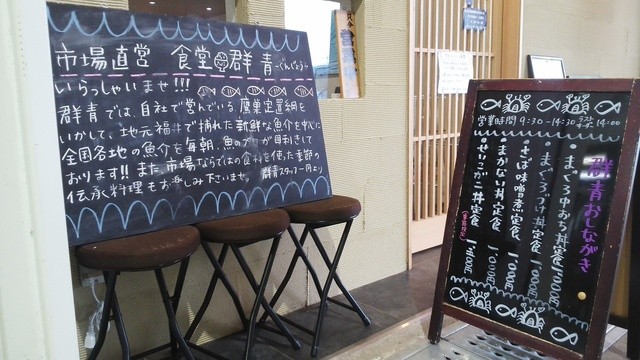 市場直営 食堂 群青 ぐんじょう
いらっしゃいませ!!!
群青では、自社で営んでいる、鷹巣定置網を
いかして、地元福井で捕れた新鮮な魚介を中心に
全国各地の魚介を毎朝、魚のプロが目利きして
おります!! また、市場ならではの食材を使った季節の
伝承料理もお楽しみ下さいませ。 群青スタッフ一同より
営業時間 9:30-14:30 ラストオーダー 14:00
群青おしながき
・まぐろ中おち丼定食 1500円
・まぐろづけ丼定食
・まかない丼定食 1000円
・さば味噌煮定食
・せいこがに丼定食